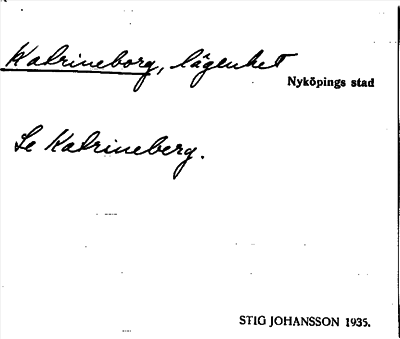 Katrineborg, lägenhet
Nyköpings stad
Se Katrineberg.
STIG JOHANSSON 1935.